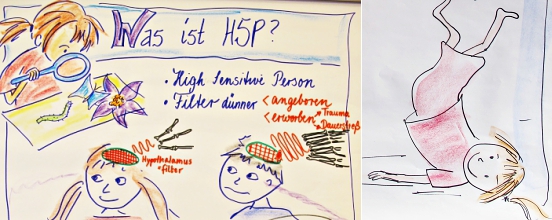 Was ist HSP?
• High Sensitive Person
• Filter dünner < angeboren
< erworben → Trauma
→ Dauerstreß
Hypothalamus
• filter